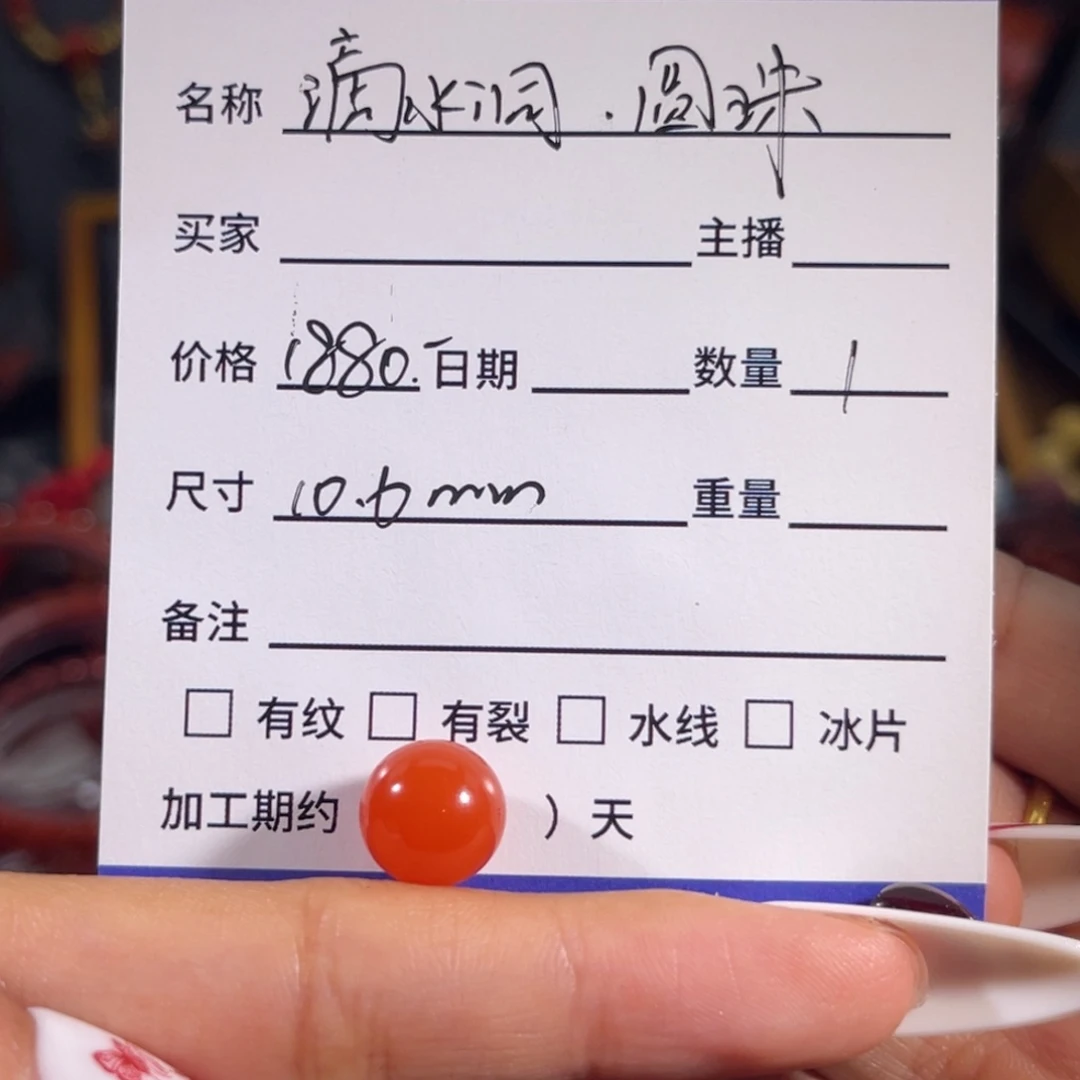 名称 滴水洞.圆珠
买家 主播
价格 1880.- 日期 数量 1
尺寸 10.6mm 重量
备注
□ 有纹 □ 有裂 □ 水线 □ 冰片
加工期约 ）天